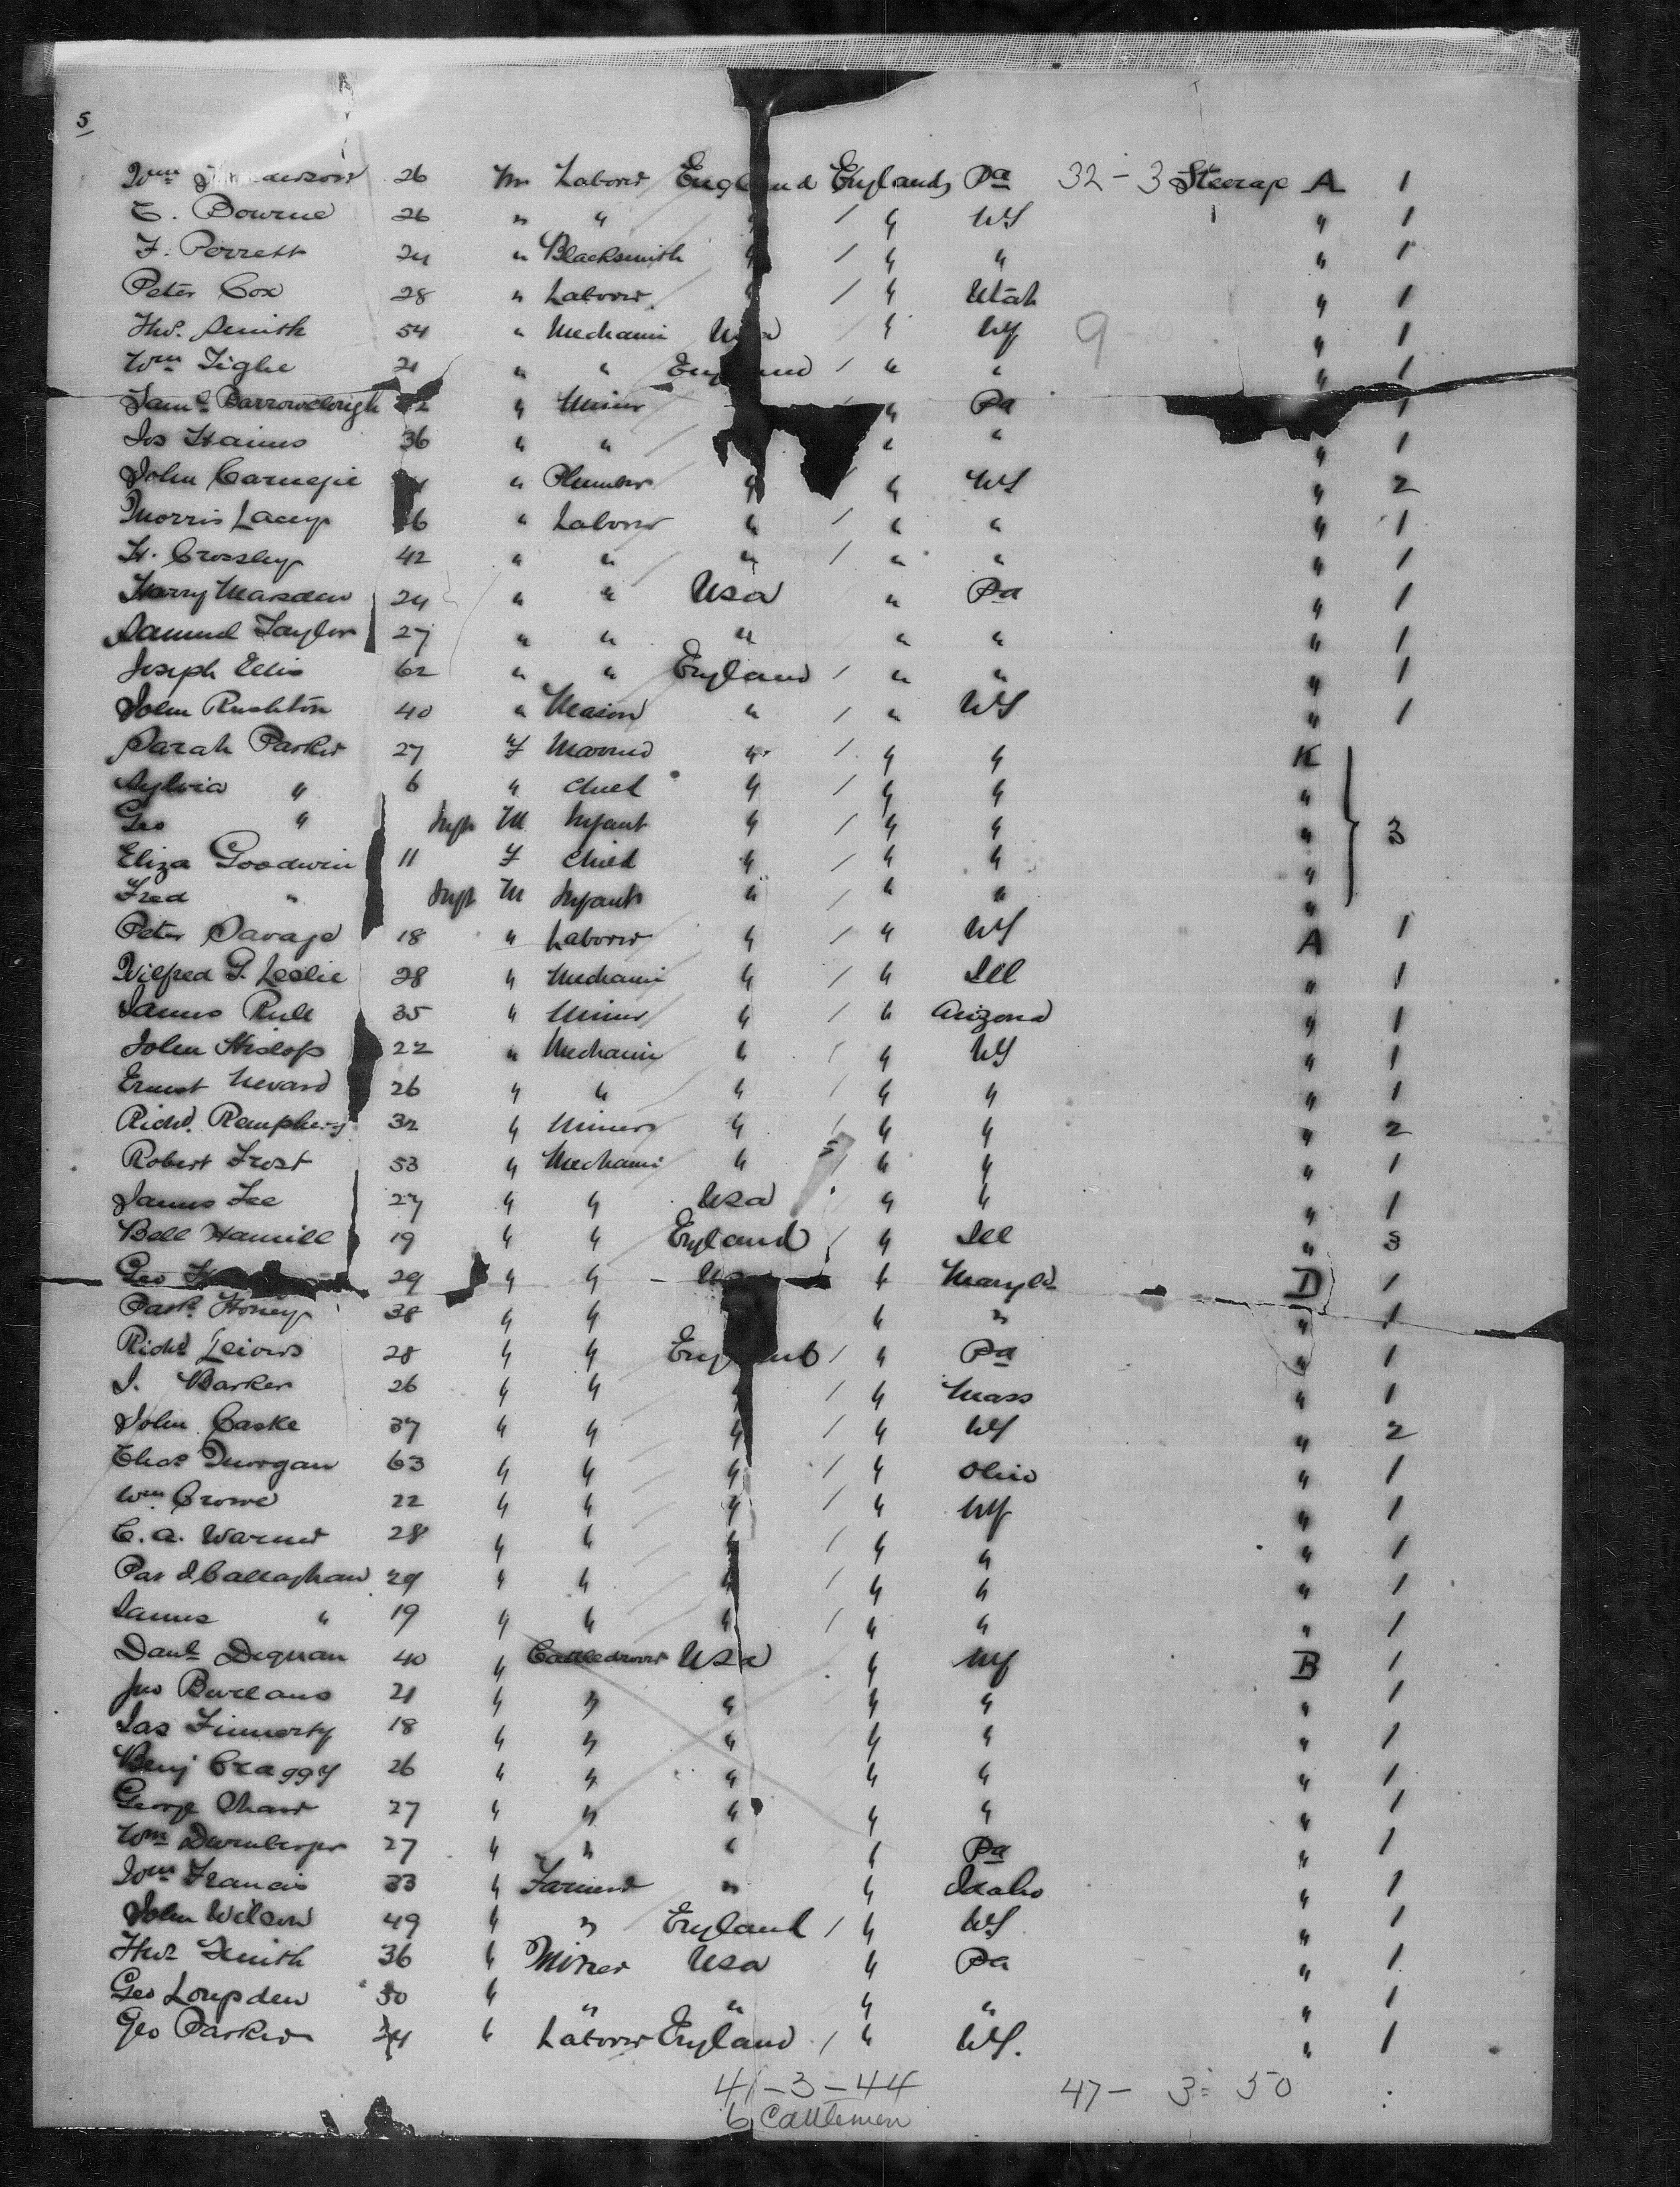 5
Wm 26 m Laborer England England Pa 32 - 3 Steerage A 1
C. Bourne 26 " " " / " NY " 1
F. Perrett 24 " Blacksmith " / " " " 1
Peter Cox 28 " Laborer " / " Utah " 1
Thos. Smith 54 " Mechanic / " NY 9 " 1
Wm Tighe 21 " " England / " " " 1
Saml Barrowclough " Miner " Pa 1
Jos Haims 36 " " / " " " 1
John Carnegie " Plumber " / " NY " 2
Morris Lacey 6 " Laborer " / " " " 1
H. Crossley 42 " " " / " " " 1
Harry Marsden 24 " " Usa " Pa " 1
Samuel Taylor 27 " " " " " " 1
Joseph Ellis 62 " " England / " " " 1
John Rushton 40 " Mason " / " NY " 1
Sarah Parker 27 F Married " / " " K
Sylvia " 6 " Child " / " " "
Geo " Inft M Infant " / " " " 3
Eliza Goodwin 11 F Child " / " " "
Fred " Inft M Infant " / " " "
Peter Savage 18 " Laborer " / " NY A 1
Wilfred G. Leslie 28 " Mechanic " / " Ill " 1
James Rule 35 " Miner " / " Arizona " 1
John Hislop 22 " Mechanic " / " NY " 1
Ernest Nevard 26 " " " / " " " 1
Richd. 32 " Miner " / " " " 2
Robert Frost 53 " Mechanic " / " " " 1
James Lee 27 " " Usa " " " 1
Bell Hamill 19 " " England / " Ill " 3
Geo 29 " " " Maryld D 1
Pask. Honey 38 " " " " " 1
Richd 28 " " England / " Pa " 1
J. Barker 26 " " " / " Mass " 1
John Caske 37 " " " / " NY " 2
Chas Morgan 63 " " " / " Ohio " 1
Wm Crowe 22 " " " / " NY " 1
C. A. Warner 28 " " " / " " " 1
Pat O'Callaghan 29 " " " / " " " 1
James " 19 " " " / " " " 1
Danl Degnan 40 " Cattledrover Usa " NY B 1
Jno 21 " " " " " " 1
Jas Finnerty 18 " " " " " " 1
Benj Craggy 26 " " " " " " 1
George Shaw 27 " " " " " " 1
Wm 27 " " " " Pa " 1
Wm Francis 33 " Farmer " " Idaho " 1
John Wilson 49 " " England / " NY " 1
Thos Smith 36 " Miner Usa " Pa " 1
Geo Loupden 30 " " " " " " 1
Geo Parker " Laborer England / " NY. " 1
41 - 3 - 44 47 - 3 = 50
6 Cattlemen